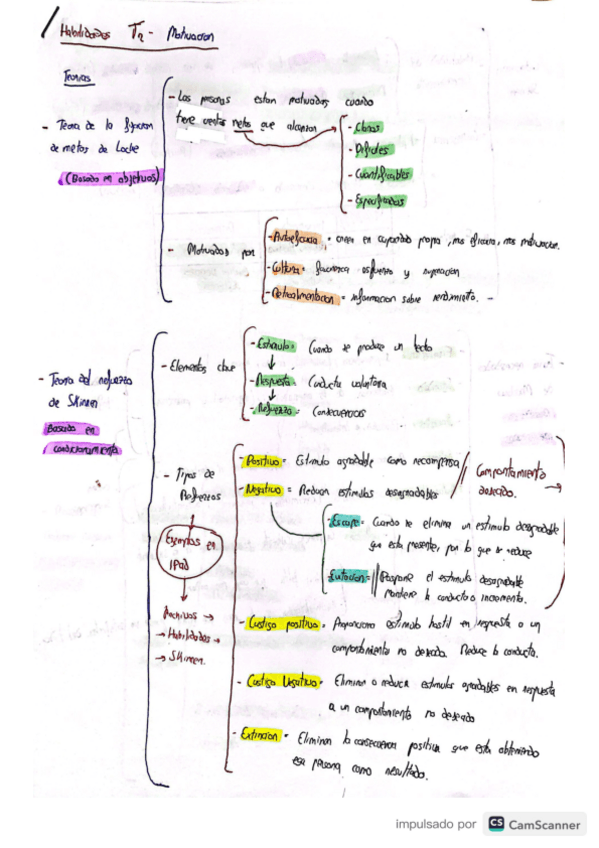 Habilidades T2 - Motivacion
Teorias
- Teoria de la fijacion
de metas de Locke
(Basado en objetivos)
- Las personas estan motivadas cuando
tiene ciertas metas que alcanzar
- Claras
- Dificiles
- Cuantificables
- Especificadas
- Motivados por
- Autoeficacia = creer en capacidad propia, mas eficacia, mas motivacion.
- Cultura = favorezca esfuerzo y superacion
- Retroalimentacion = informacion sobre rendimiento. -
- Teoria del refuerzo
de Skinner
Basada en
condicionamiento
- Elementos clave
- Estimulo = Cuando se produce un hecho
- Respuesta = Conducta voluntaria
- Refuerzo = Consecuencias
- Tipos de
Refuerzos
Ejemplos en
iPad
→ Archivos →
→ Habilidades →
→ Skinner.
- Positivo = Estimulo agradable como recompensa
- Negativo = Reducen estimulos desagradables
Comportamiento
deseado.
- Escape = Cuando se elimina un estimulo desagradable
que esta presente, por lo que se reduce
- Evitacion = Pospone el estimulo desagradable
Mantiene la conducta o incrementa.
- Castigo positivo = Proporciona estimulo hostil en respuesta a un
comportamiento no deseado. Reduce la conducta.
- Castigo Negativo = Eliminar o reducir estimulos agradables en respuesta
a un comportamiento no deseado
- Extincion = Eliminan la consecuencia positiva que esta obteniendo
esa persona como resultado.
impulsado por CS CamScanner